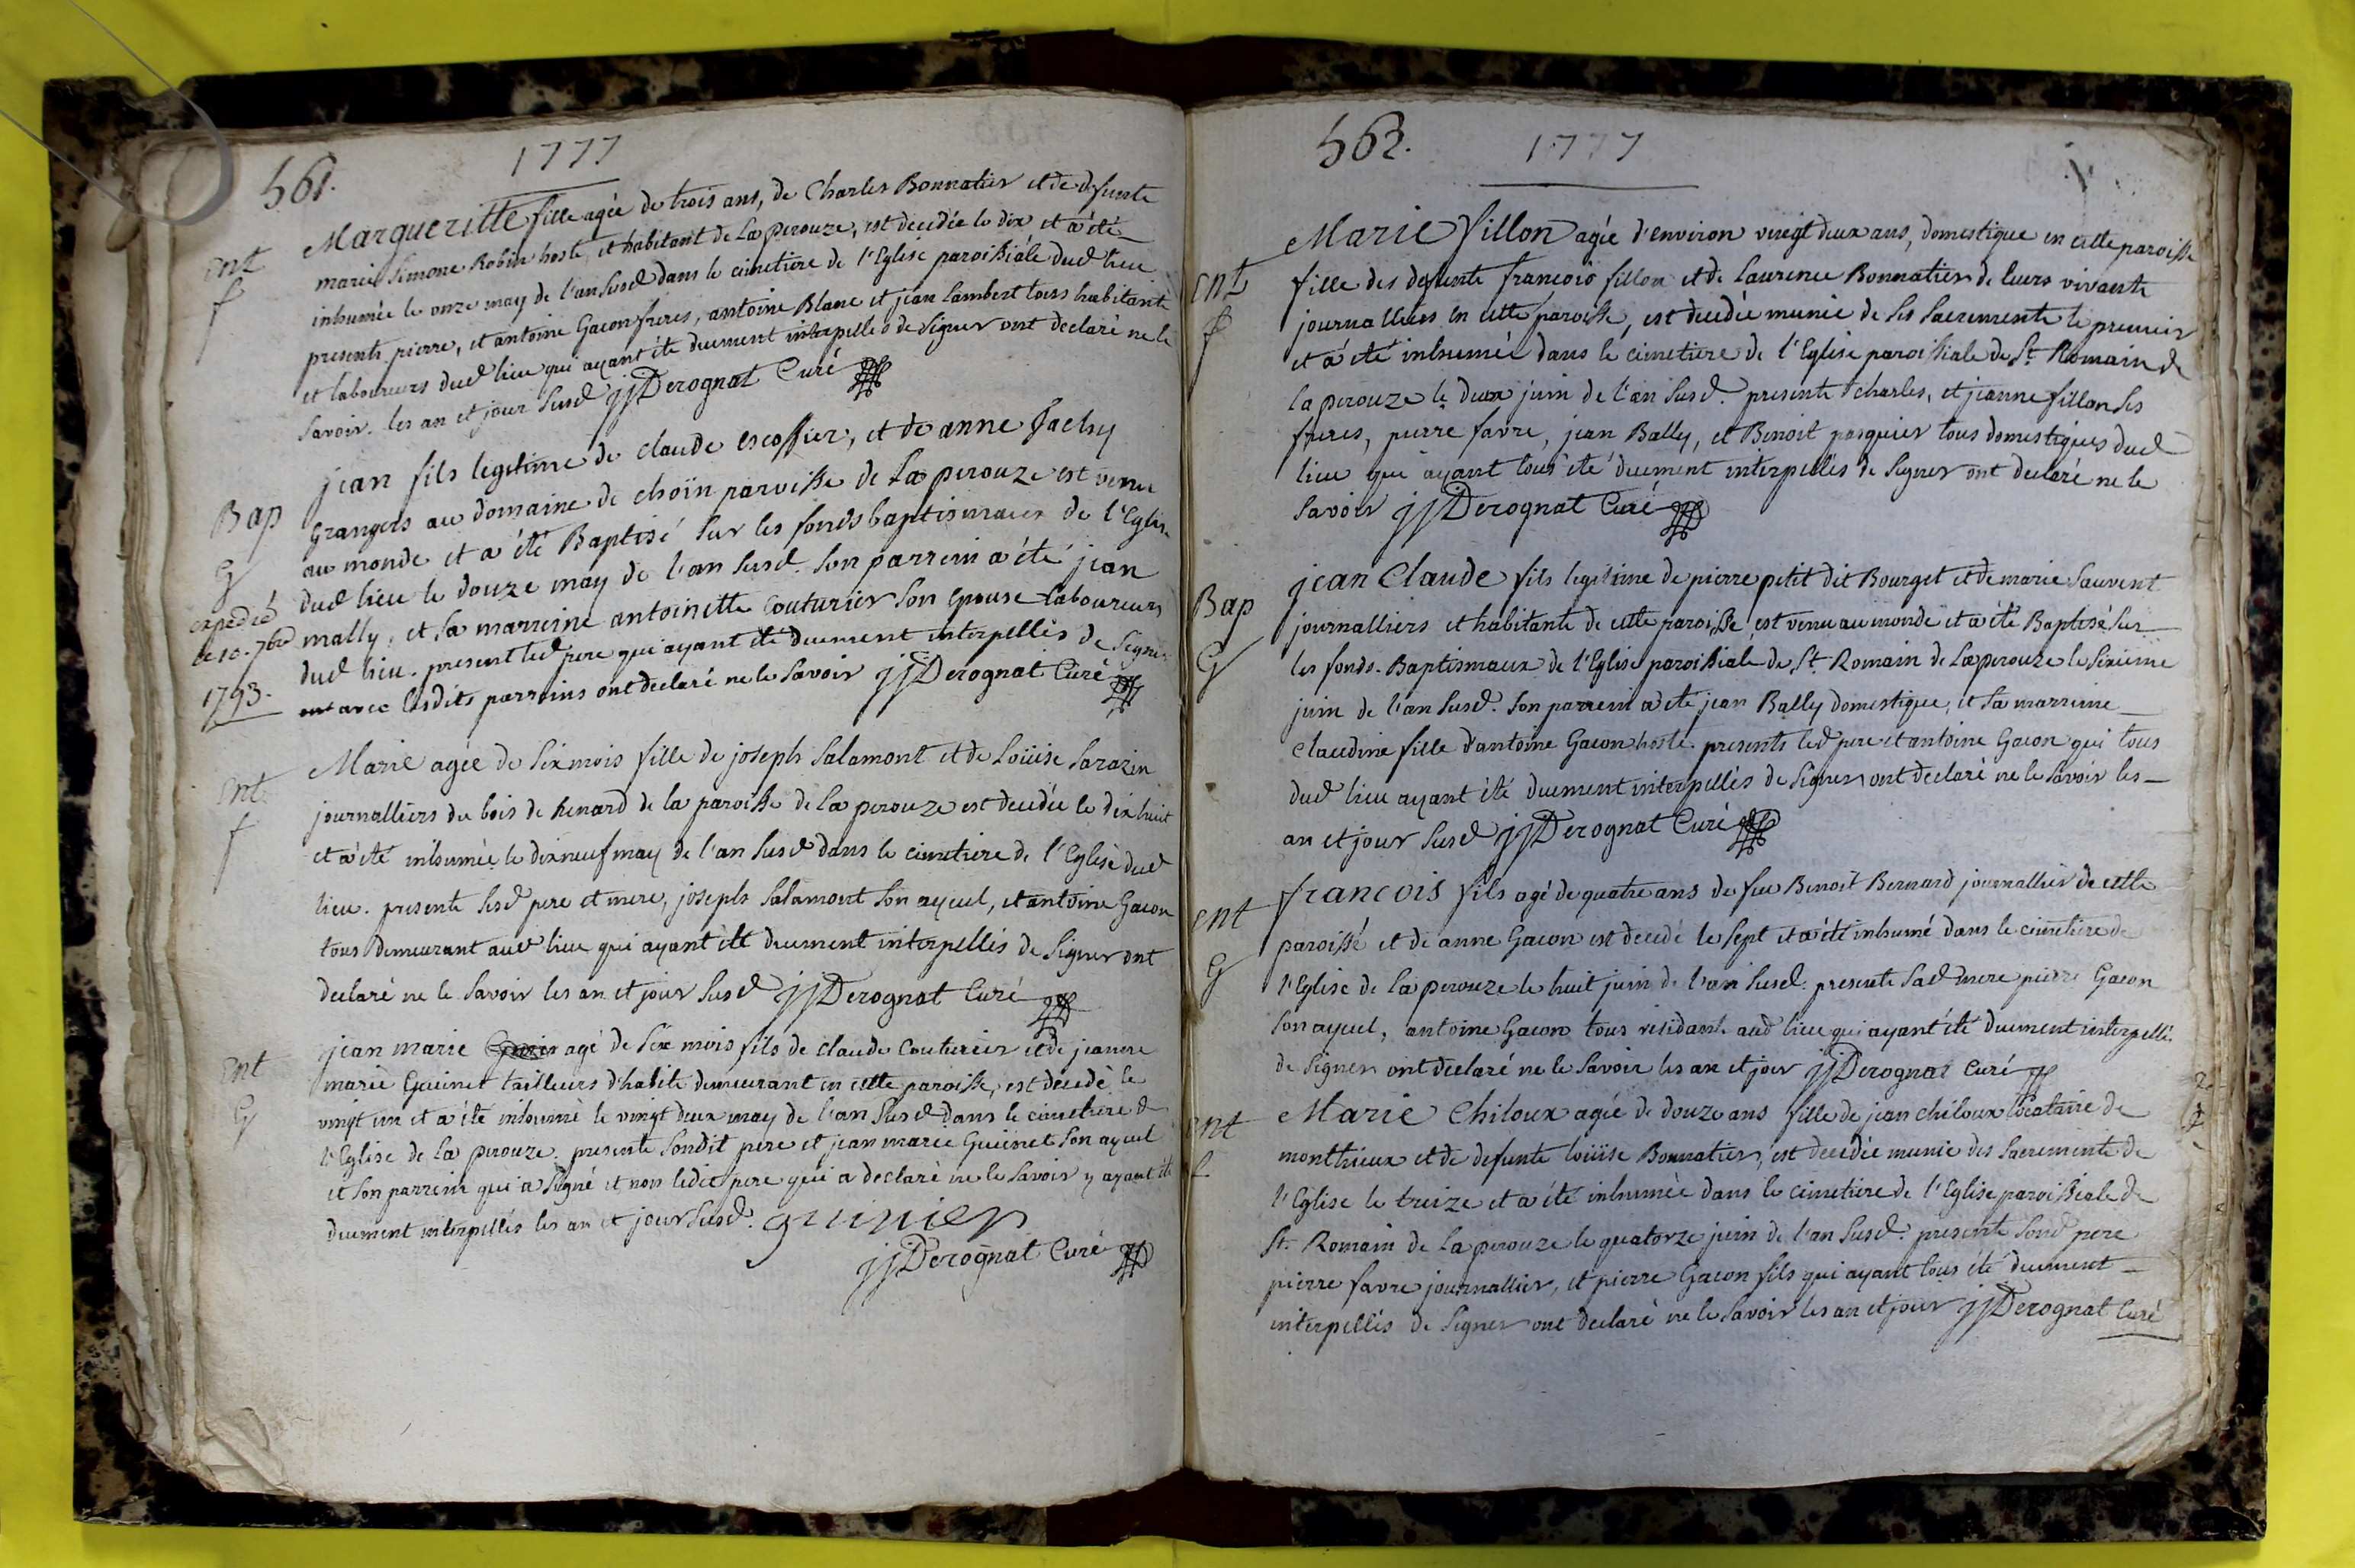 561.
1777
ent
f
Margueritte fille agée de trois ans, de Charles Bonnatier et de defunte
marie Simone Robin hoste, et habitant de La perouze, est decedée le dix et a été
inhumée le onze may de l'an susd dans le cimetiere de l'Eglise paroissiale dud lieu
presents pierre, et antoine Gacon freres, antoine Blanc et jean Lambert tous habitants
et laboureurs dud lieu qui ayant été duement interpellés de signer ont declaré ne le
savoir. les an et jour susd jjDerognat Curé
Bap
G
expedié
le 10. 7bre
1793.
jean fils legitime de claude escoffier, et de anne
Grangers au domaine de choin paroisse de La perouze est venu
au monde et a été Baptisé sur les fonds baptismaux de l'Eglise
dud lieu le douze may de l'an susd. son parrein a été jean
mally, et sa marreine antoinette Couturier son epouse laboureurs
dud lieu. present led pere qui ayant été duement interpellés de signer
avec lesdits parreins ont declaré ne le savoir jjDerognat Curé
ent
f
Marie agée de six mois fille de joseph Salamont et de Loüise Sarazin
journalliers du bois de Renard de la paroisse de La perouze est decedée le dixhuit
et a été inhumée le dixneuf may de l'an susd dans le cimetiere de l'Eglise dud
lieu. presents sesd pere et mere, joseph Salamont son ayeul, et antoine Gacon
tous demeurant aud lieu qui ayant été duement interpellés de signer ont
declaré ne le savoir les an et jour susd jjDerognat Curé
ent
G
jean marie agé de six mois fils de claude Couturier et de jeanne
marie Guinet tailleurs d'habits demeurant en cette paroisse, est décédé le
vingt un et a été inhumé le vingt deux may de l'an susd dans le cimetiere de
l'Eglise de La perouze. presents sondit pere et jean marie Guinet son ayeul
et son parrein qui a signé et non ledit pere qui a declaré ne le savoir y ayant été
duement interpellés les an et jour susd. guinier
jjDerognat Curé
562.
1777
ent
f
Marie fillon agée d'environ vingt deux ans, domestique en cette paroisse
fille des defunts francois fillon et de Laurence Bonnatier de leurs vivants
journalliers en cette paroisse, est decedée munie de ses sacrements le premier
et a été inhumée dans le cimetiere de l'Eglise paroissiale de St. Romain de
la perouze le deux juin de l'an susd. presents charles, et jeanne fillon ses
freres, pierre favre, jean Bally, et Benoit pasquier tous domestiques dud
lieu qui ayant tous été duement interpellés de signer ont declaré ne le
savoir jjDerognat Curé
Bap
G
jean Claude fils legitime de pierre petit dit Bourget et de marie Sauvent
journalliers et habitants de cette paroisse est venu au monde et a été Baptisé sur
les fonds Baptismaux de l'Eglise paroissiale de St. Romain de Laperouze le sixieme
juin de l'an susd. son parrein a été jean Bally domestique, et sa marreine
Claudine fille d'antoine Gacon hoste. presents led pere et antoine Gacon qui tous
dud lieu ayant été duement interpellés de signer ont declaré ne le savoir les
an et jour susd jjDerognat Curé
ent
G
francois fils agé de quatre ans de feu Benoit Bernard journallier de cette
paroisse et de anne Gacon est decedé le sept et a été inhumé dans le cimetiere de
l'Eglise de La perouze le huit juin de l'an susd. presents sad mere pierre Gacon
son ayeul, antoine Gacon tous residants aud lieu qui ayant été duement interpellés
de signer ont declaré ne le savoir les an et jour jjDerognat Curé
ent
f
Marie Chiloux agée de douze ans fille de jean chiloux locataire de
monthieux et de defunte Loüise Bonnatier, est decedée munie des sacrements de
l'Eglise le treize et a été inhumée dans le cimetiere de l'Eglise paroissiale de
St. Romain de La perouze le quatorze juin de l'an susd. presents sond pere
pierre favre journallier, et pierre Gacon fils qui ayant tous été duement
interpellés de signer ont declaré ne le savoir les an et jour jjDerognat Curé